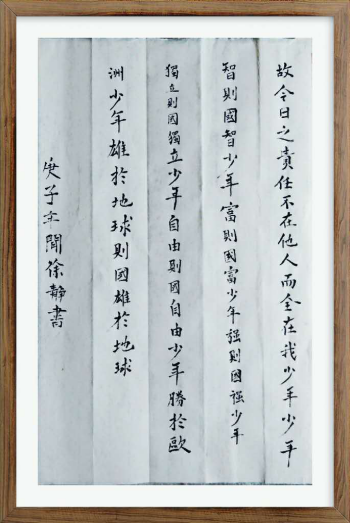 故今日之責任不在他人而全在我少年少年
智則國智少年富則國富少年强則國强少年
獨立則國獨立少年自由則國自由少年勝於歐
洲少年雄於地球則國雄於地球
庚子 間徐靜書